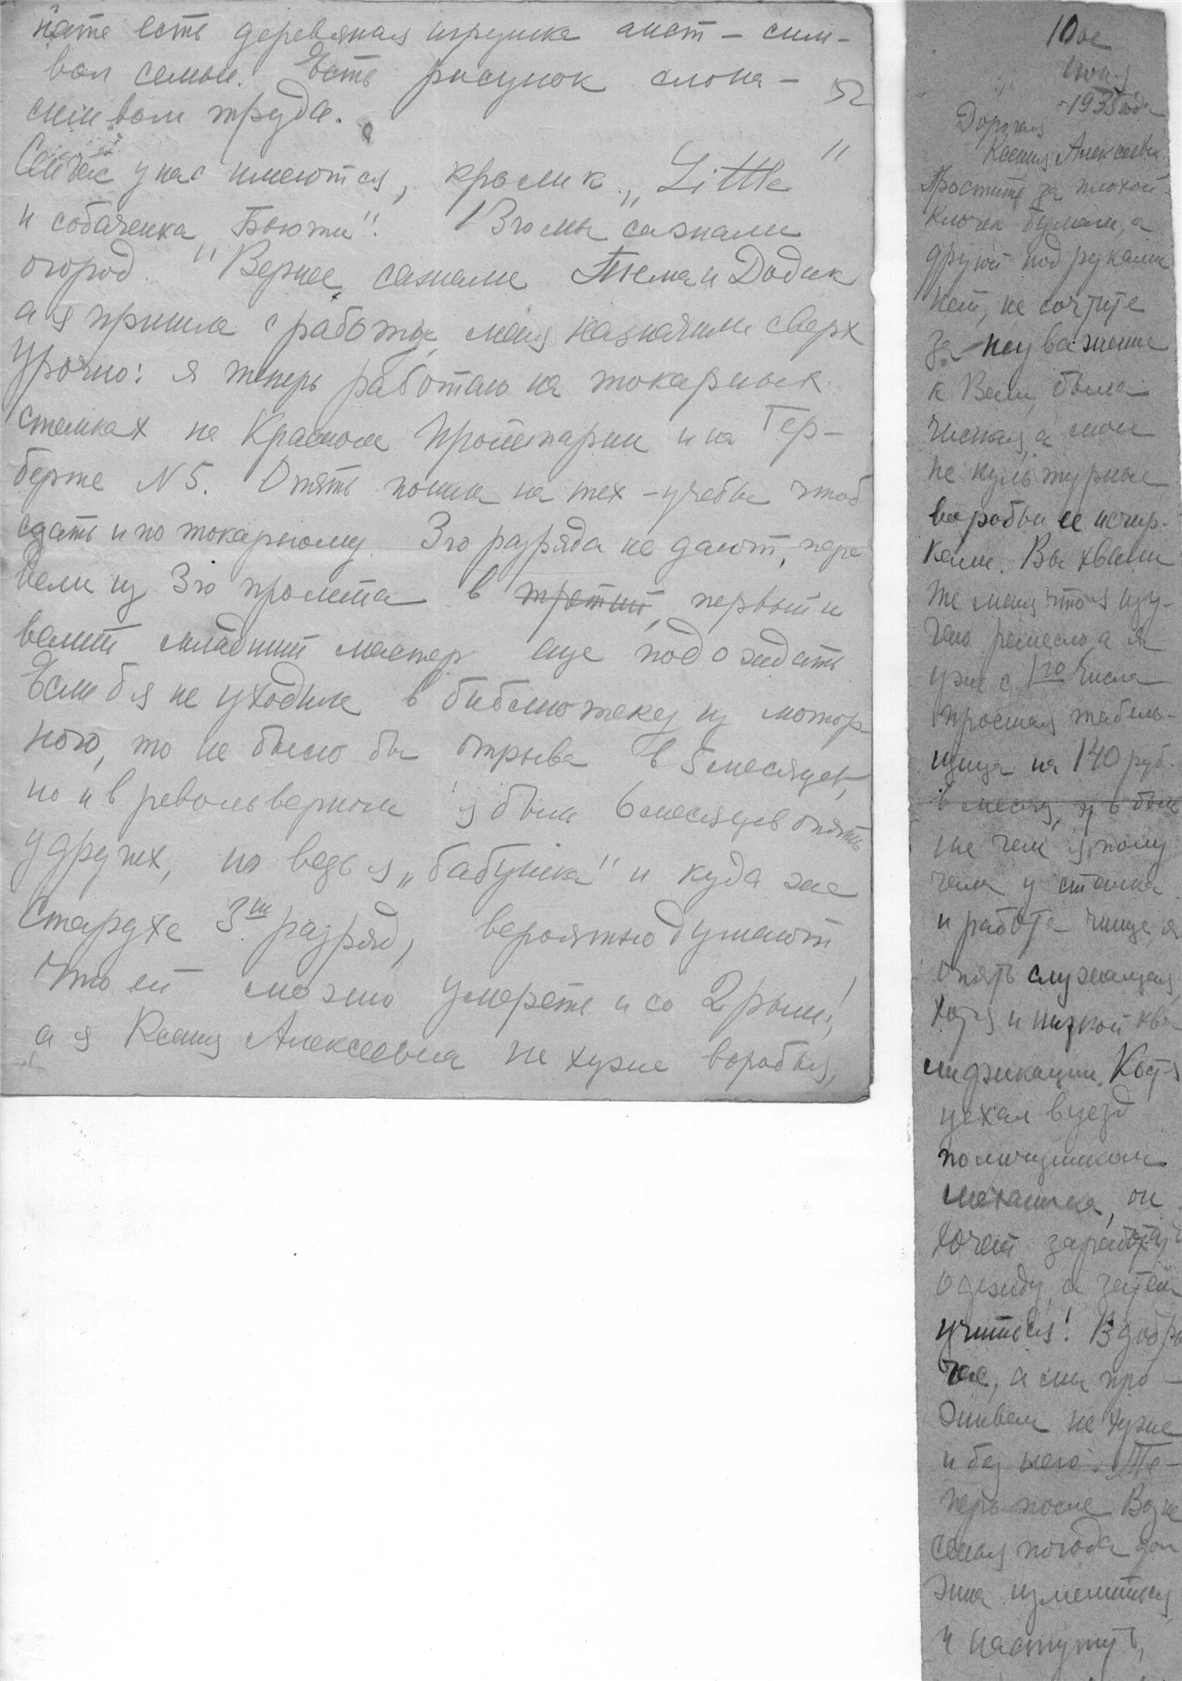 нате есть деревяная игрушка аист – сим-
вол семьи. Есть рисунок слона –
символ труда.
52
Сейчас у нас имеются, кролик „Little"
и собаченка „Бьюти". 13го мы сажали
огород. Вернее сажали Тёма и Додик
а я пришла с работы, меня назначили сверх
урочно: я теперь работаю на токарных
станках на Красном Пролетарии и на Гер-
берте N 5. Опять пошла на тех-учебы чтоб
сдать и по токарному. 3го разряда не дают, пере
вели из 3го пролета в третий, первый и
велит младший мастер еще подождать
Если б я не уходила в библиотеку из мотор
ного, то не было бы отрыва в 5 месяцев,
но и в револьверном я была 6 месяцев опять
у других, но ведь я „бабушка" и куда же
старухе 3ий разряд, вероятно думают
что ей можно умереть и со 2рым!,
а я Ксения Алексеевна не хуже воробья,
10ое
июня
1935 года
Дорогая
Ксения Алексеевна,
Простите за плохой
клочек бумаги, а
другой под руками
нет, не сочтите
за неуважение
к Вам, была
чистая, а мои
не культурные
воробьи ее исчир-
кали. Вы хвали
те меня что я изу-
чаю ремесло а я
уже с 1го числа
простая табель-
щица на 140 руб.
в месяц,
ше чем я полу
чала у станка
и работа чище, я
опять служащая,
хотя и низкой ква
лификации. Костя
уехал в уезд
помощником
механика, он
хочет заработать
одежду, а затем
учиться! В добры
час, а мы про-
живем не хуже
и без него. Те-
перь после Возне
сенья погода дол
жна измениться
и наступут,